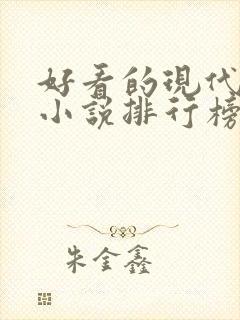 好看的现代
小说排行榜
朱金鑫